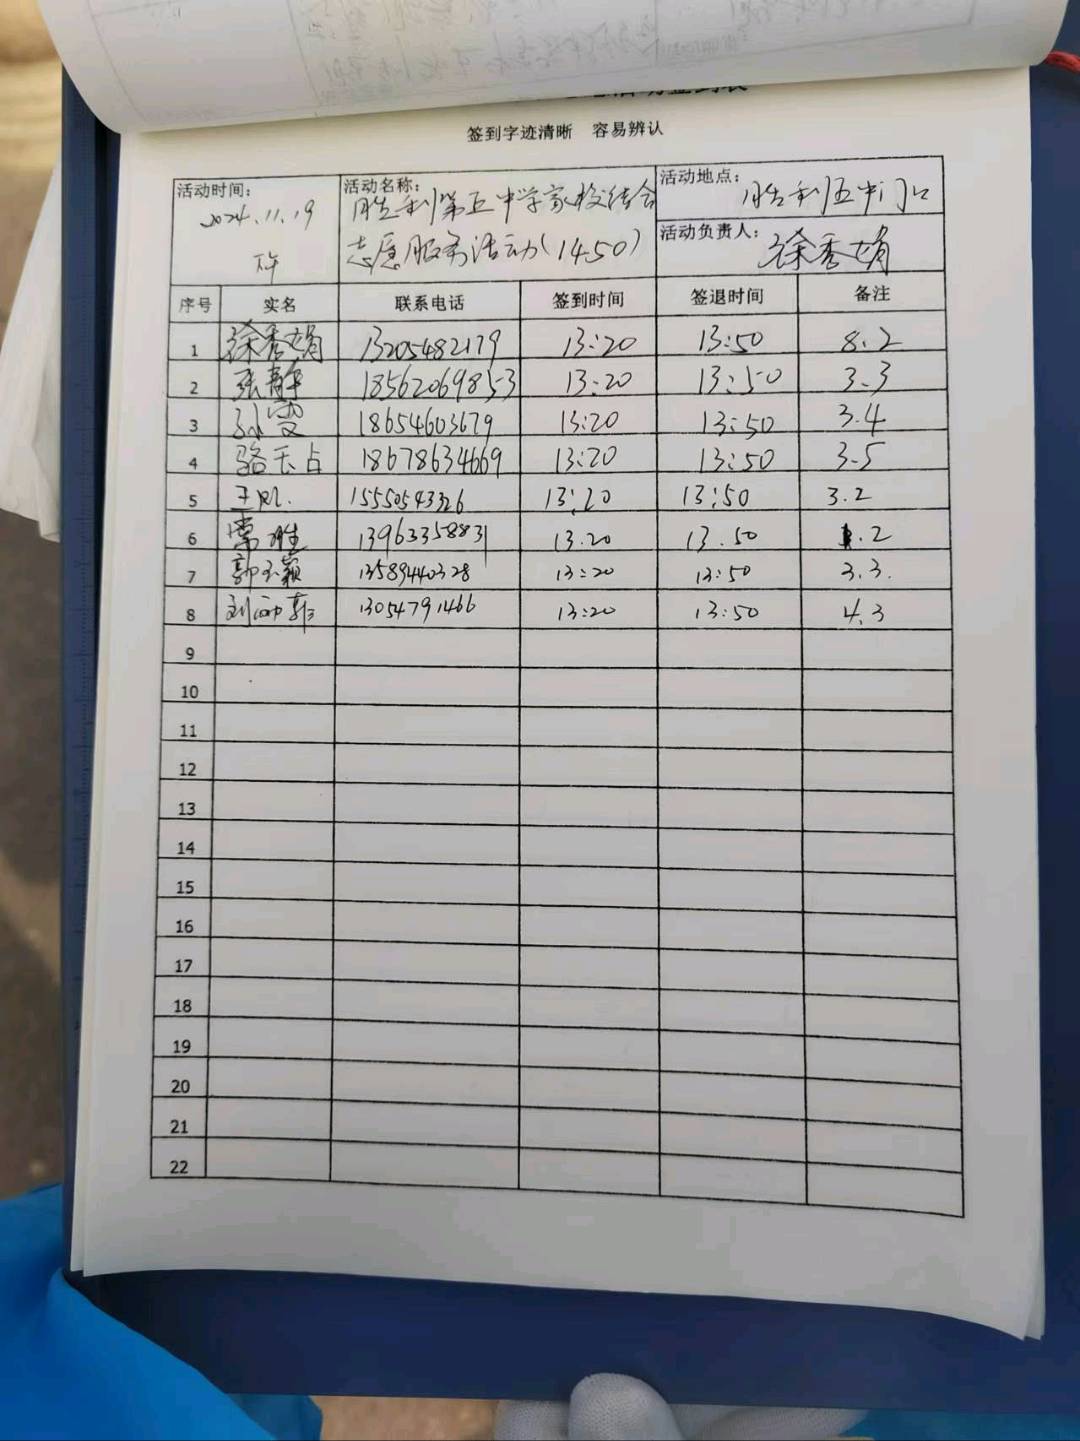 签到字迹清晰 容易辨认
活动时间: 2024.11.19
活动名称: 胜利第五中学家校结合
志愿服务活动(1450)
活动地点: 胜利五中门口
活动负责人: 徐秀娟
序号 实名 联系电话 签到时间 签退时间 备注
1 徐秀娟 13205482179 13:20 13:50 8.2
2 张静 18562069853 13:20 13:50 3.3
3 18654603679 13:20 13:50 3.4
4 骆玉占 18678634669 13:20 13:50 3.5
5 15550543326 13:20 13:50 3.2
6 常胜 13963358831 13.20 13.50 .2
7 郭玉颖 13589440328 13:20 13:50 3.3.
8 刘 13054791466 13:20 13:50 4.3
9
10
11
12
13
14
15
16
17
18
19
20
21
22